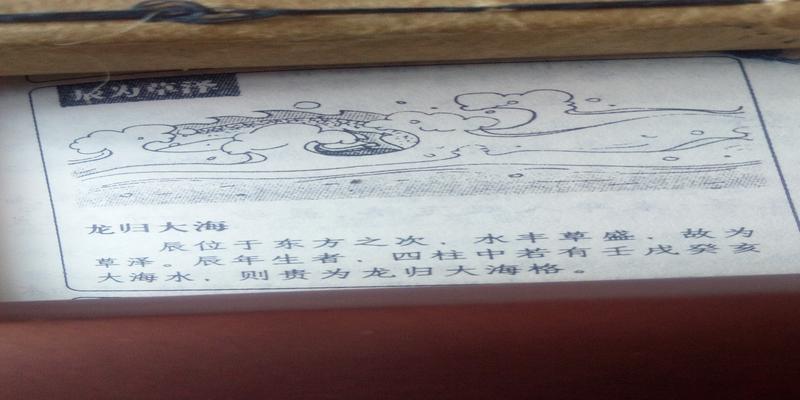 辰为草泽
龙归大海
辰位于东方之次，水丰草盛，故为
草泽。辰年生者，四柱中若有壬戌癸亥
大海水，则贵为龙归大海格。